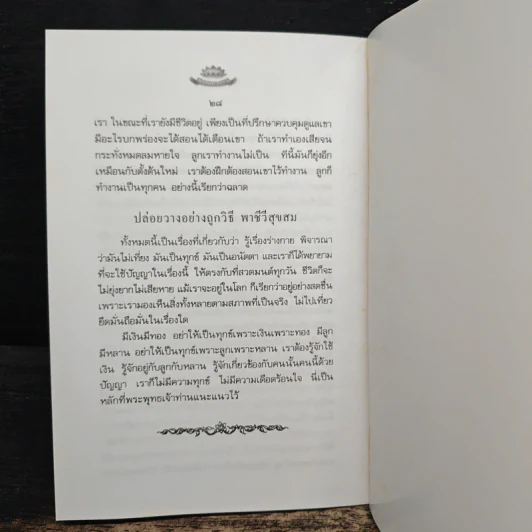 ๒๘
เรา ในขณะที่เรายังมีชีวิตอยู่ เพียงเป็นที่ปรึกษาควบคุมดูแลเขา
มีอะไรบกพร่องจะได้สอนได้เตือนเขา ถ้าเราทำเองเสียจน
กระทั่งหมดลมหายใจ ลูกเราทำงานไม่เป็น ทีนี้มันก็ยุ่งอีก
เหมือนกับตั้งต้นใหม่ เราต้องฝึกต้องสอนเขาไว้ทำงาน ลูกก็
ทำงานเป็นทุกคน อย่างนี้เรียกว่าฉลาด
ปล่อยวางอย่างถูกวิธี พาชีวีสุขสม
ทั้งหมดนี้เป็นเรื่องที่เกี่ยวกับว่า รู้เรื่องร่างกาย พิจารณา
ว่ามันไม่เที่ยง มันเป็นทุกข์ มันเป็นอนัตตา และเราก็ได้พยายาม
ที่จะใช้ปัญญาในเรื่องนี้ ให้ตรงกับที่สวดมนต์ทุกวัน ชีวิตก็จะ
ไม่ยุ่งยากไม่เสียหาย แม้เราจะอยู่ในโลก ก็เรียกว่าอยู่อย่างสดชื่น
เพราะเรามองเห็นสิ่งทั้งหลายตามสภาพที่เป็นจริง ไม่ไปเที่ยว
ยึดมั่นถือมั่นในเรื่องใด
มีเงินมีทอง อย่าให้เป็นทุกข์เพราะเงินเพราะทอง มีลูก
มีหลาน อย่าให้เป็นทุกข์เพราะลูกเพราะหลาน เราต้องรู้จักใช้
เงิน รู้จักอยู่กับลูกกับหลาน รู้จักเกี่ยวข้องกับคนนั้นคนนี้ด้วย
ปัญญา เราก็ไม่มีความทุกข์ ไม่มีความเดือดร้อนใจ นี่เป็น
หลักที่พระพุทธเจ้าท่านแนะแนวไว้